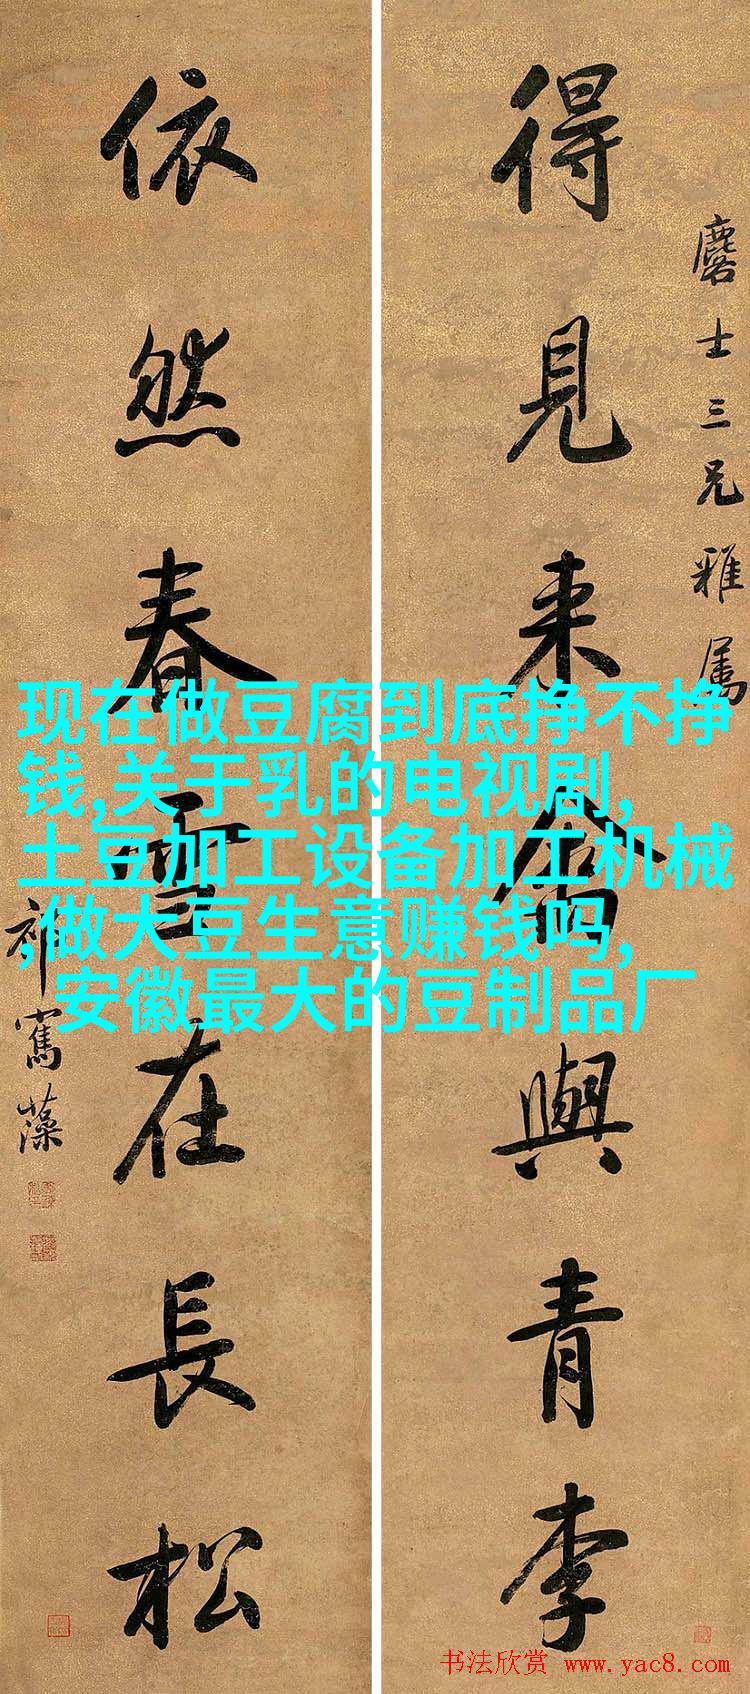 得見来禽與青李
麐士三兄雅属
依然春雪在長松
祁寯藻
现在做豆腐到底挣不挣
钱,关于乳的电视剧,
土豆加工设备加工机械
,做大豆生意赚钱吗,
安徽最大的豆制品厂
书法欣赏 www.yac8.com